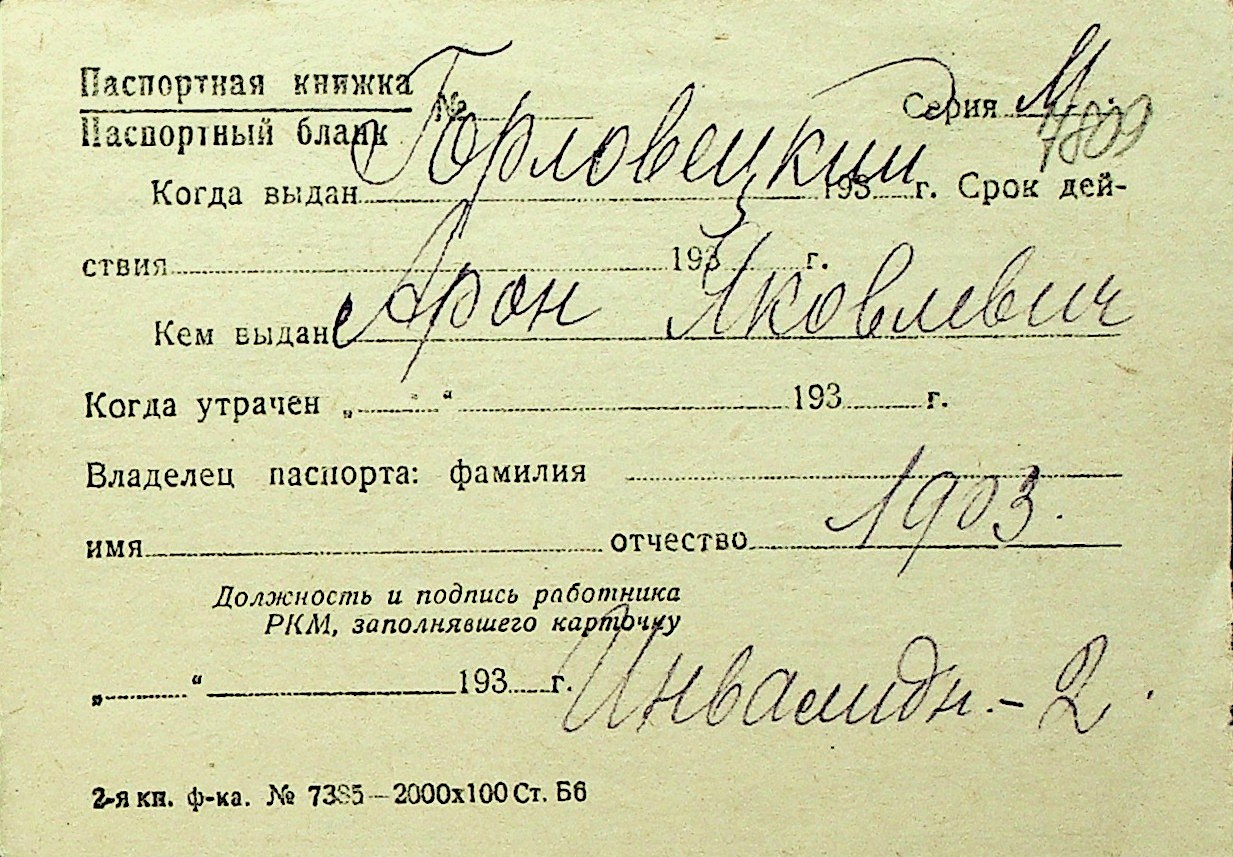 Паспортная книжка
Паспортный бланк № Серия М
7809
Горловецкий
Когда выдан 193 г. Срок дей-
ствия 193 г.
Арон Яковлевич
Кем выдан
Когда утрачен „ “ 193 г.
Владелец паспорта: фамилия
1903.
имя отчество
Должность и подпись работника
РКМ, заполнявшего карточку
„ “ 193 г.
Инвалидн. - 2.
2-я кн. ф-ка. № 7385 — 2000х100 Ст. Б6